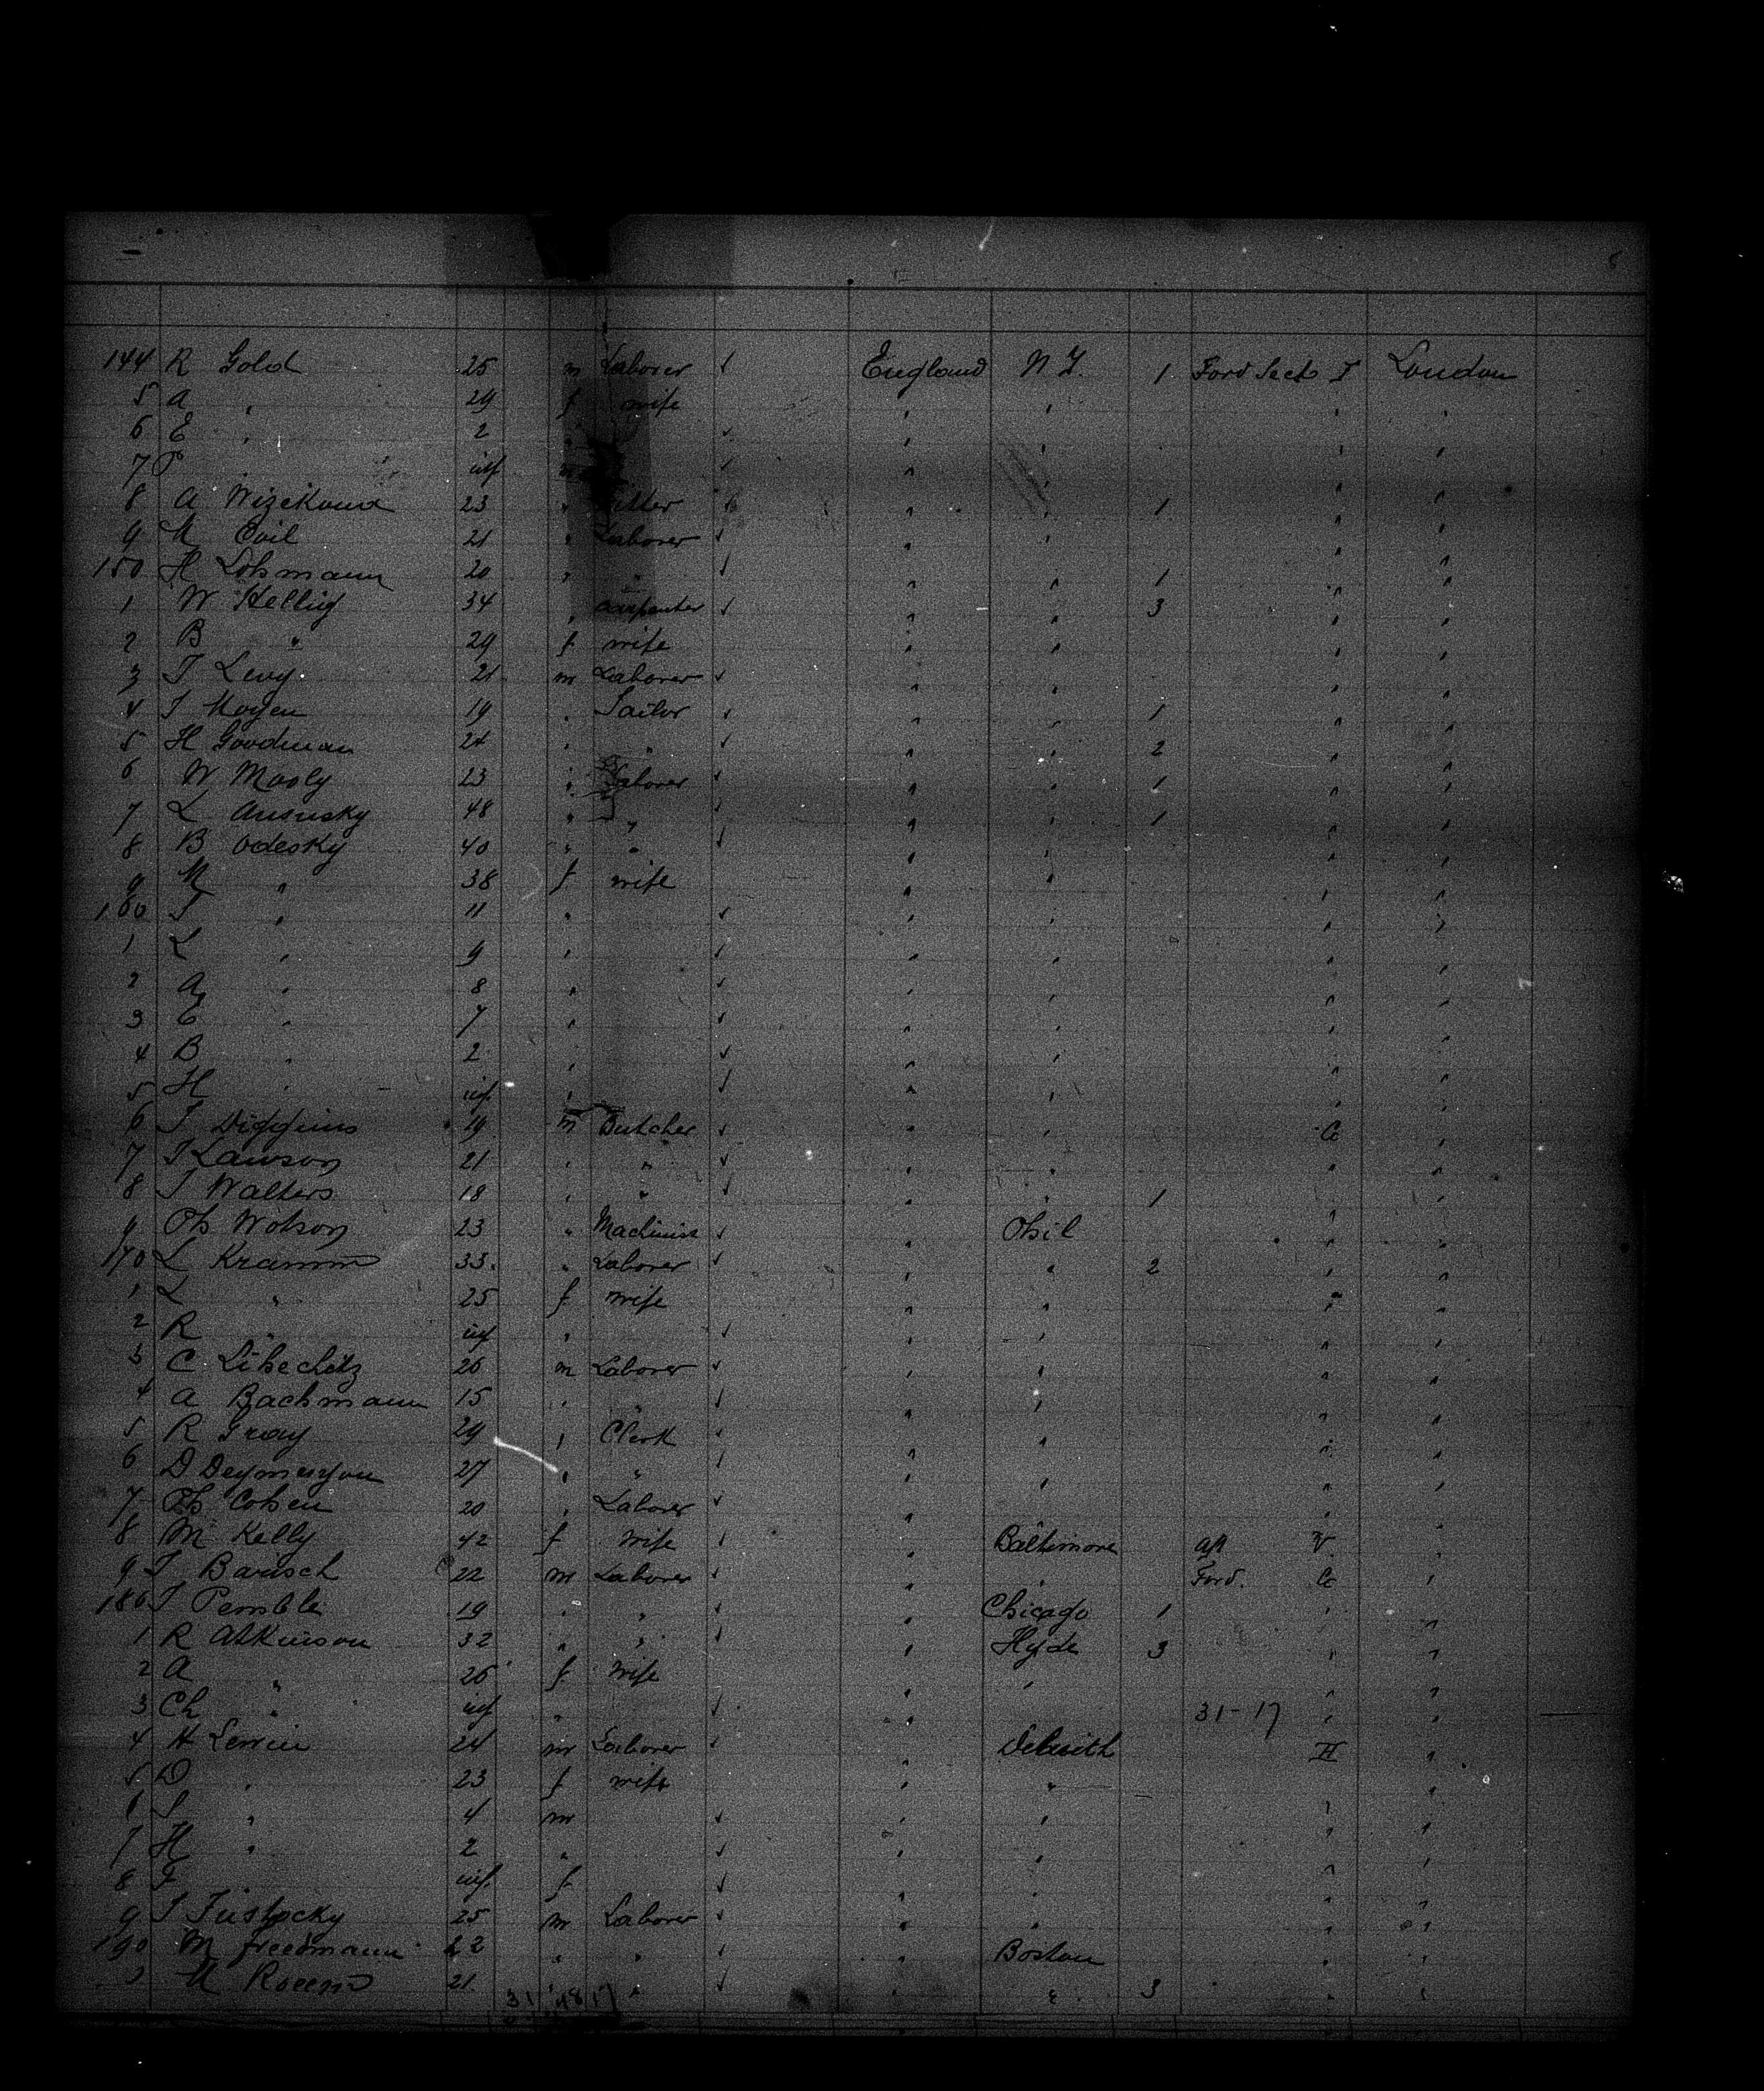 144 R Gold 25 m Laborer ✓ England N Y. 1 Ford Sect I London
5 A " 29 f wife " " " "
6 E " 2 " ✓ " " " "
7 P inf m ✓ " " " "
8 A 23 " " " 1 " "
9 M Coil 21 " Laborer ✓ " " " "
150 H Lohmann 20 " " ✓ " " 1 " "
1 W Hellig 34 " carpenter ✓ " " 3 " "
2 B " 29 f wife " " " "
3 T Levy. 21 m Laborer ✓ " " " "
4 J Moyen 19 " Sailor ✓ " " 1 " "
5 H Goodman 24 " " ✓ " " 2 " "
6 W Mosly 23 " Laborer ✓ " " 1 " "
7 L 48 " " ✓ " " 1 " "
8 B Odesky 40 " " ✓ " " " "
9 M " 38 f wife " " " "
160 J " 11 " ✓ " " " "
1 L " 9 " ✓ " " " "
2 A " 8 " ✓ " " " "
3 E " 7 " ✓ " " " "
4 B " 2 " ✓ " " " "
5 H " inf " ✓ " " " "
6 J Diggins 19 m Butcher ✓ " " C "
7 J Lawson 21 " " ✓ " " " "
8 J Walters 18 " " ✓ " " 1 " "
9 Ph Wolson 23 " Machinist ✓ " Phil " "
170 L Kramm 33. " Laborer ✓ " " 2 " "
1 L " 25 f wife " " " "
2 R " inf " ✓ " " " "
3 C 26 m Laborer ✓ " " " "
4 A Bachmann 15 " " ✓ " " " "
5 R Gray 29 " Clerk ✓ " " " "
6 D 27 " " ✓ " " " "
7 Ph Cohen 20 " Laborer ✓ " " "
8 M Kelly 42 f wife ✓ " Baltimore aft V "
9 J Bausch 22 m Laborer ✓ " " Ford. C "
180 J Pemble 19 " " ✓ " Chicago 1 " "
1 R Atkinson 32 " " ✓ " Hyde 3 " "
2 A " 26 f wife " " " "
3 Ch " inf " ✓ " 31-17 " "
4 H Lewin 24 m Laborer ✓ " II "
5 D " 23 f wife " " "
6 S " 4 m ✓ " " " "
7 H " 2 " ✓ " " " "
8 F inf f ✓ " " " "
9 J 25 m Laborer ✓ " " " "
190 M Freedmann 22 " " ✓ " Boston " "
M 21 " " ✓ " " 3 " "
31 48 17